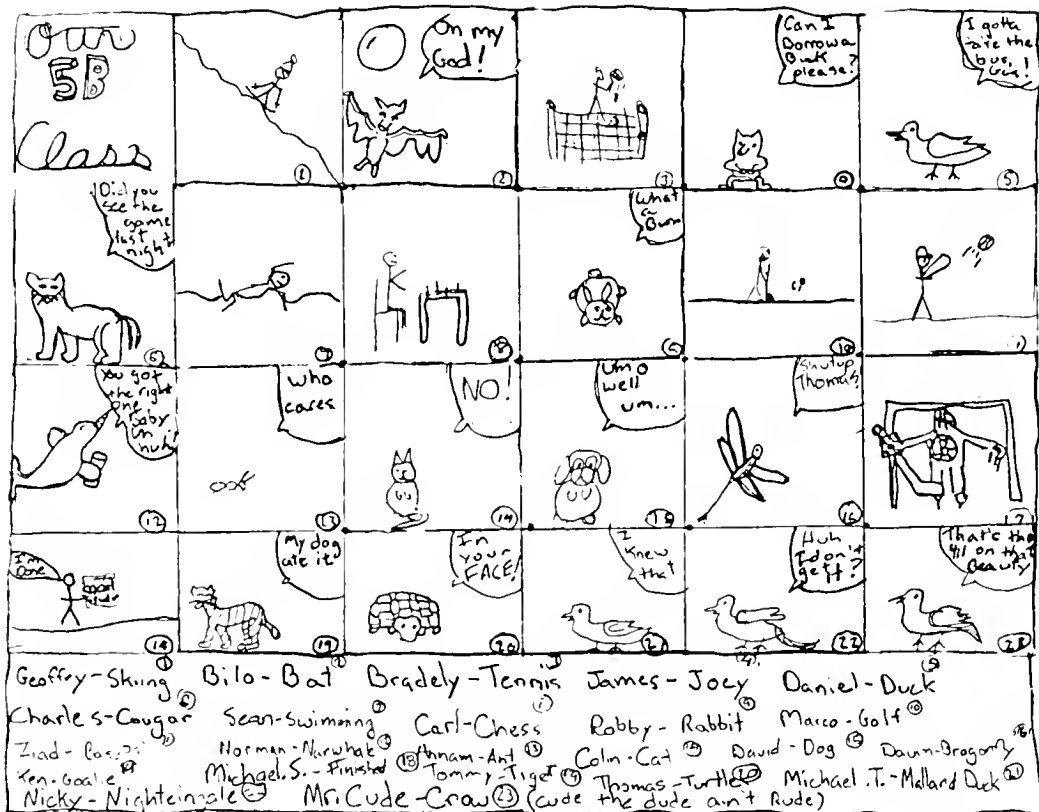 Our
5B
Class
Oh my
God!
Can I
Borrow a
Buck
please?
I gotta
the
bus,
Gus!
1
2
3
4
5
Did you
see the
game
last
night
What
a
Bum
6
7
8
10
You got
the right
one
Baby
uh
huh!
Who
cares
NO!
Um o
well
um...
Shutup
Thomas!
12
13
14
15
16
17
I'm
Done
My dog
ate it!
In
your
FACE!
I
knew
that
Huh
I don't
get it?
That's the
on that
Beauty
18
19
20
21
22
23
Geoffrey-Skiing 1 Bilo-Bat 2 Bradely-Tennis James-Joey Daniel-Duck
Charles-Cougar 6 Sean-Swimming 7 Carl-Chess Robby-Rabbit Marco-Golf 10
Ziad- Norman-Narwhale Annam-Ant 13 Colin-Cat 14 David-Dog 15
Ken-Goalie Michael.S.-Finished 18 Tommy-Tiger 19 Thomas-Turtle 20 Michael.T.-Mallard Duck 21
Nicky-Nighteingale Mr.Cude-Crow 23 (cude the dude ain't Rude)